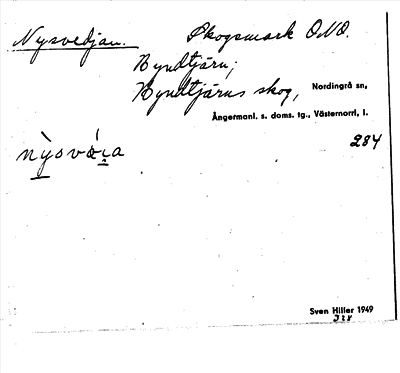 Nysvedjan. Skogsmark ONO.
Ryndtjärn;
Ryndtjärns skog, Nordingrå sn,
Ångermanl. s. doms. tg., Västernorrl. l.
284
Sven Hiller 1949